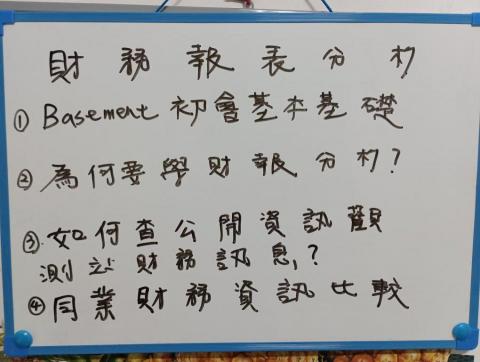 財務報表分析
① Basement 初會基本基礎
② 為何要學財報分析?
③ 如何查公開資訊觀
測站財務訊息?
④ 同業財務資訊比較